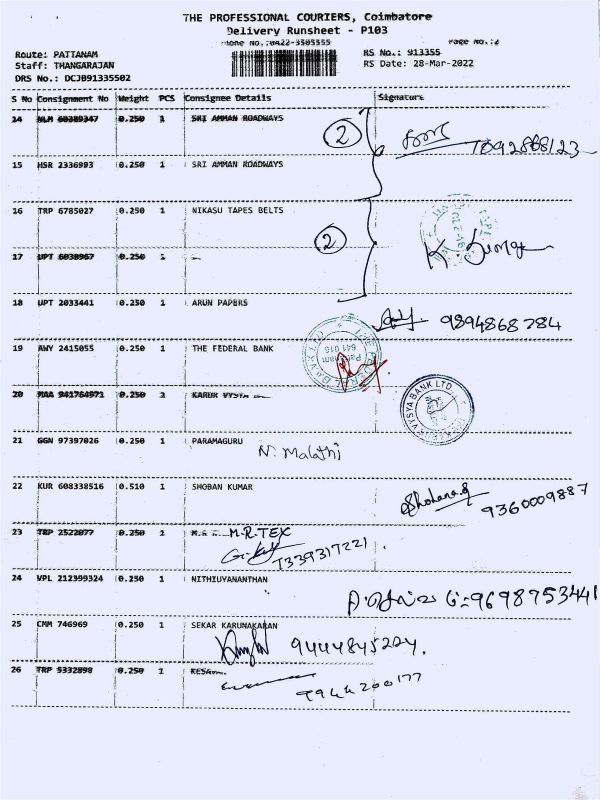 THE PROFESSIONAL COURIERS, Coimbatore
Delivery Runsheet - P103
Phone No.:0422-3505555 Page No.:2
Route: PATTANAM RS No.: 913355
Staff: THANGARAJAN RS Date: 28-Mar-2022
DRS No.: DCJB91335502
S No Consignment No Weight PCS Consignee Details Signature
14 NLM 60389347 0.250 1 SRI AMMAN ROADWAYS
2
15 HSR 2336993 0.250 1 SRI AMMAN ROADWAYS
16 TRP 6785027 0.250 1 NIKASU TAPES BELTS
2
17 UPT 6038967 0.250 1
18 UPT 2033441 0.250 1 ARUN PAPERS
9894868784
19 AWY 2415055 0.250 1 THE FEDERAL BANK
20 MAA 941764971 0.250 KARUR VYSYA
VYSYA BANK LTD
21 GGN 97397026 0.250 1 PARAMAGURU
N. Malathi
22 KUR 608338516 0.510 1 SHOBAN KUMAR
9360009887
23 TRP 2522077 0.250 M.R.TEX
7339317221
24 VPL 212399324 0.250 1 NITHIUYANANTHAN
9698753441
25 CMM 746969 0.250 1 SEKAR KARUNAKARAN
9444845224.
26 TRP 5332898 0.250 1
9944200177